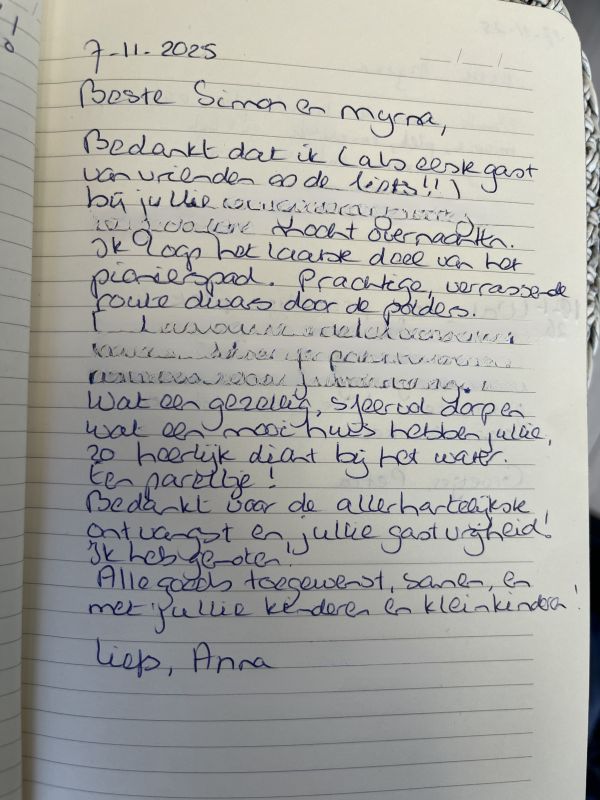 7-11-2025
Beste Simon en Myrna,
Bedankt dat ik (als eerste gast
van vrienden op de fiets!!)
bij jullie
mocht overnachten.
Ik loop het laatste deel van het
pionierspad. Prachtige, verrassende
route dwars door de polders.
Wat een gezellig, sfeervol dorp en
wat een mooi huis hebben jullie,
zo heerlijk dicht bij het water.
Een pareltje!
Bedankt voor de allerhartelijkste
ontvangst en jullie gastvrijheid!
Ik heb genoten!
Alle goeds toegewenst, samen, en
met jullie kinderen en kleinkinderen!
Liefs, Anna